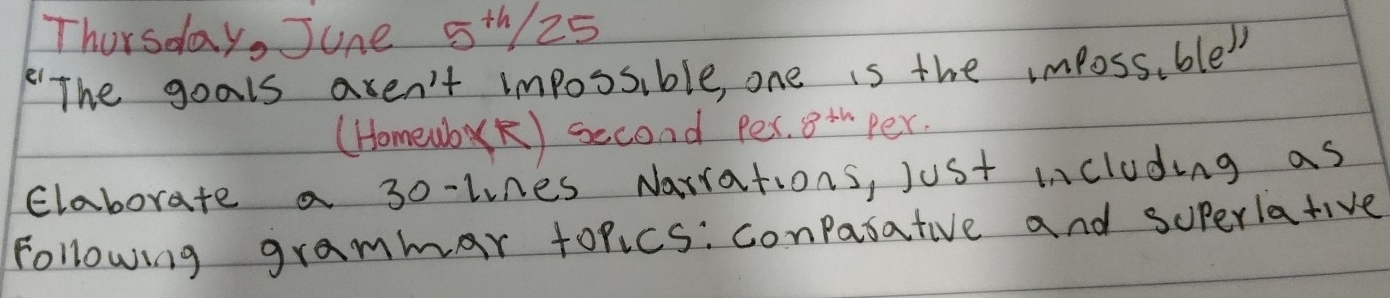 Thursday, June 5th/25
"The goals aren't impossible, one is the impossible"
(Homework) second per. 8th per.
Elaborate a 30-lines Narrations, just including as
Following grammar topics: conparative and superlative